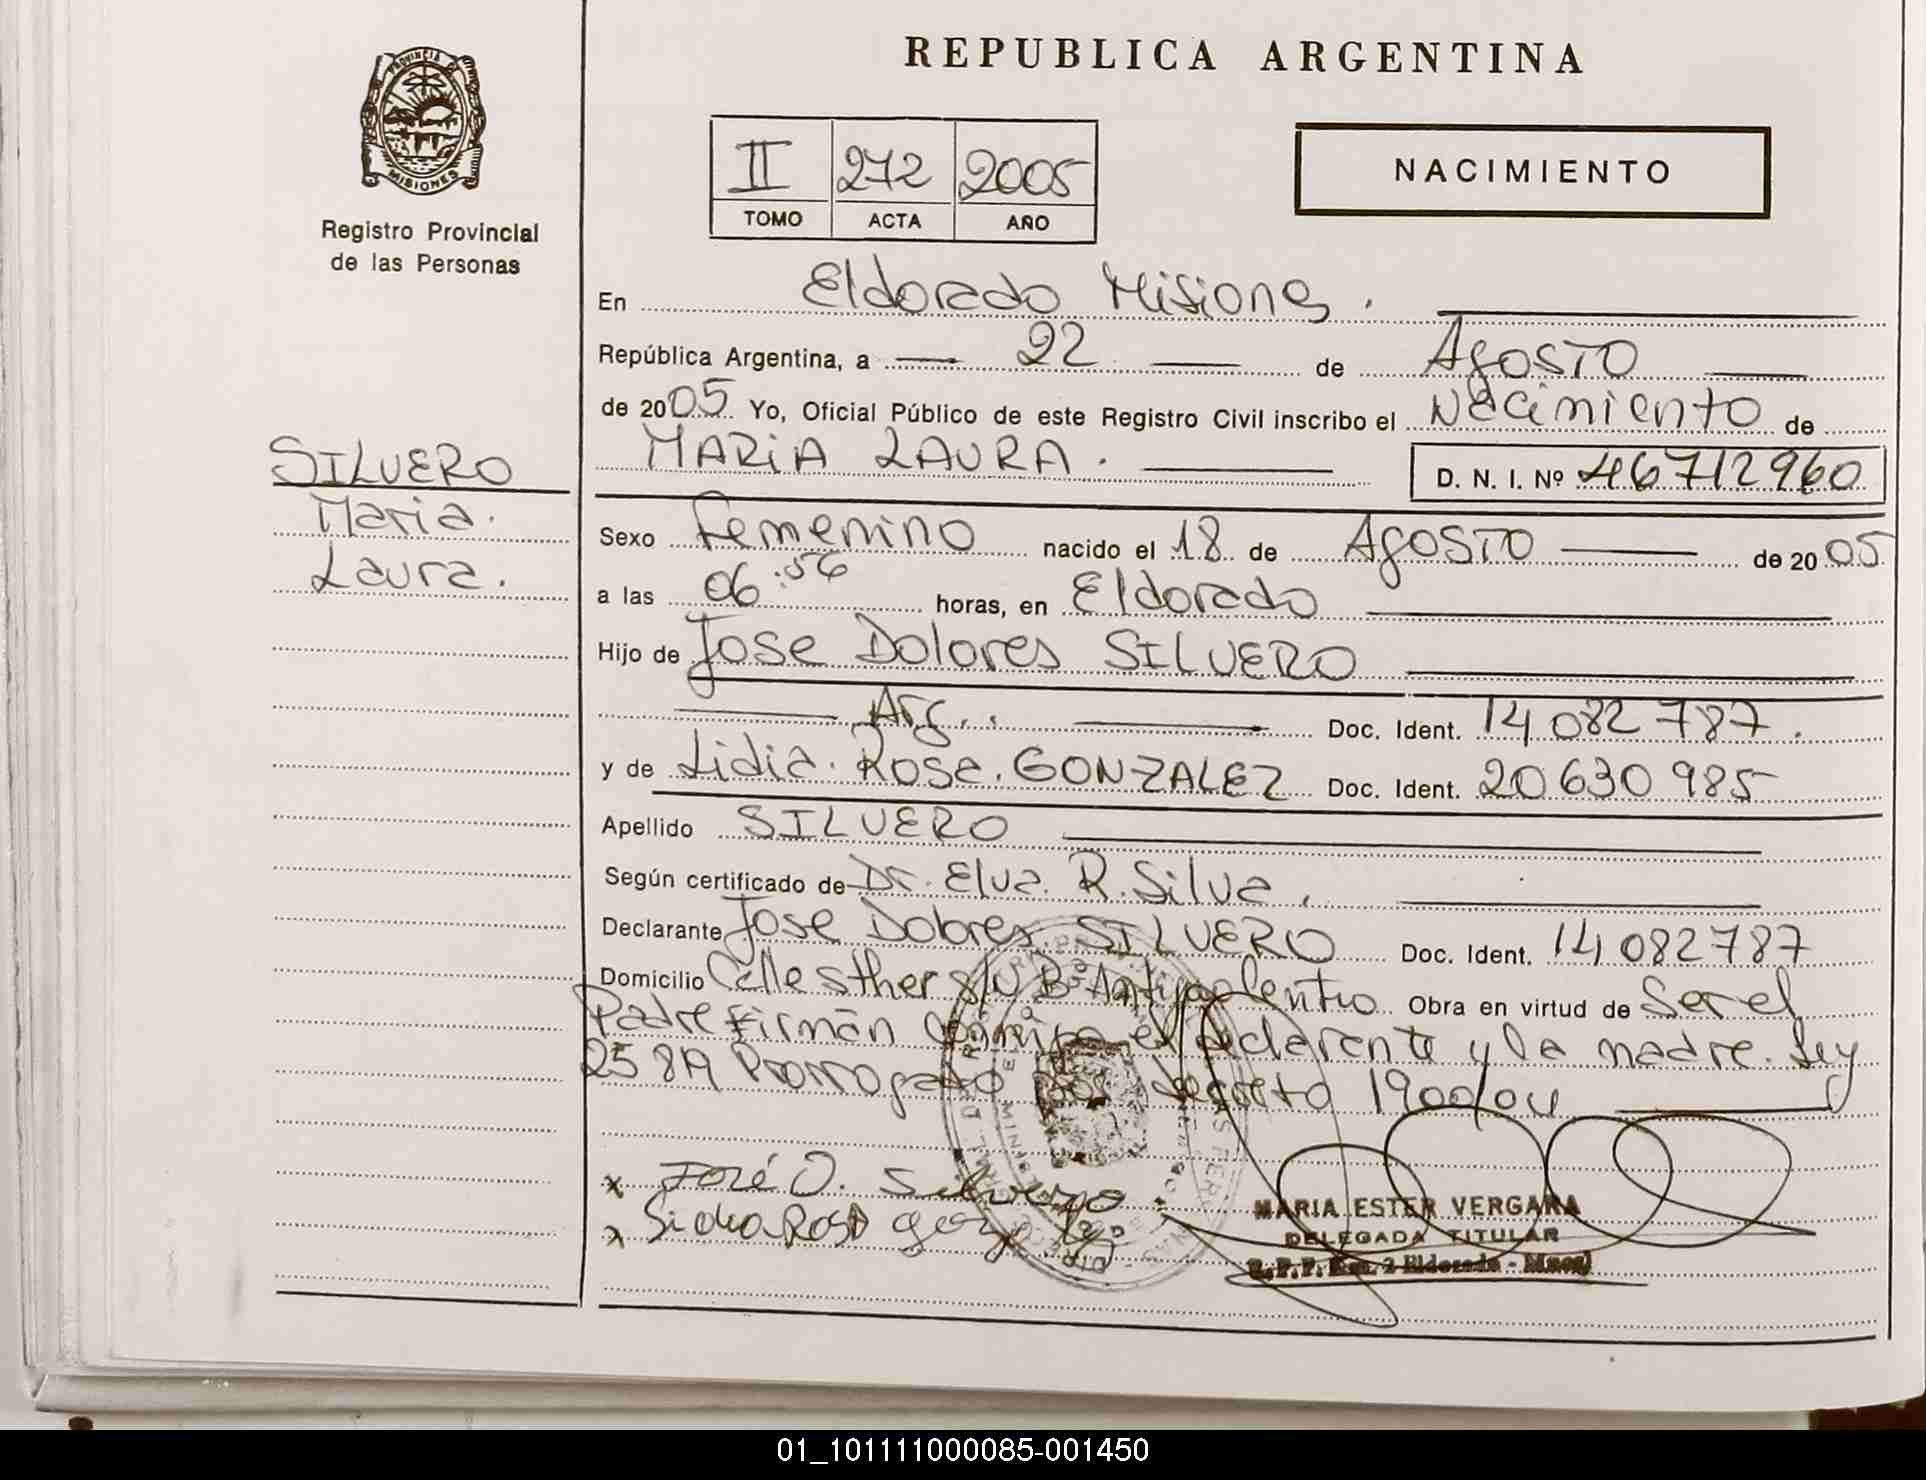 REPUBLICA ARGENTINA
PROVINCIA
MISIONES
Registro Provincial
de las Personas
II 272 2005
TOMO ACTA AÑO
NACIMIENTO
En Eldorado Misiones.
República Argentina, a 22 de Agosto
de 2005 Yo, Oficial Público de este Registro Civil inscribo el Nacimiento de
MARIA LAURA. D. N. I. Nº 46712960
SILVERO
Maria.
Laura.
Sexo Femenino nacido el 18 de Agosto de 2005
a las 06:56 horas, en Eldorado
Hijo de Jose Dolores SILVERO
Arg. Doc. Ident. 14 082 787.
y de Lidia. Rosa. GONZALEZ Doc. Ident. 20 630 985
Apellido SILVERO
Según certificado de Dr. Elva. R. Silva.
Declarante Jose Dolores SILVERO Doc. Ident. 14 082787
Domicilio Calle sther s/N Bº Obra en virtud de Ser el
Padre firmán conmigo el declarante y la madre. Ley
25 819 Prorrogado por decreto 1900/04
x José D. Silvero
x Rosa
MARIA ESTER VERGARA
DELEGADA TITULAR
Eldorado - Mnes)
01_101111000085-001450